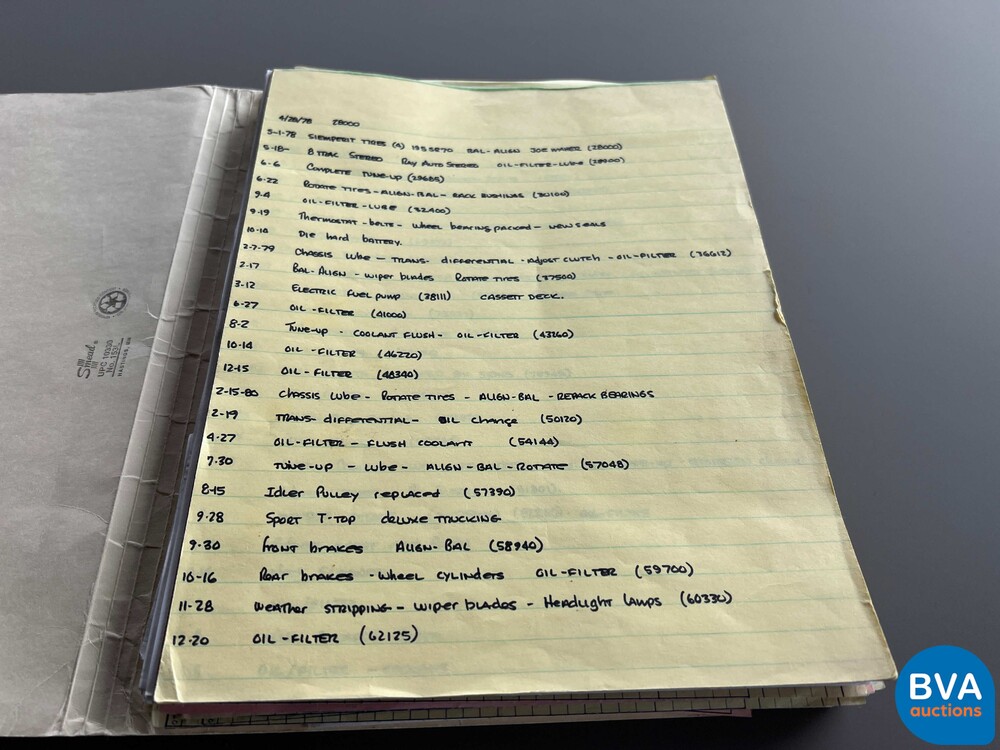 4/28/78 28000
5-1-78 SIEMPERIT TIRES (4) 195SR70 BAL-ALIGN JOE (28000)
5-18- 8 TRAC STEREO RAY AUTO STEREO OIL-FILTER-LUBE (28900)
6-6 COMPLETE TUNE-UP (29685)
6-22 ROTATE TIRES-ALIGN-BAL- RACK BUSHINGS (30100)
9-4 OIL-FILTER-LUBE (32400)
9-19 Thermostat-belts- wheel bearing packed- NEW SEALS
10-10 Die hard battery.
2-7-79 Chassis lube - TRANS. differential-Adjust clutch - OIL-FILTER (36612)
2-17 BAL-ALIGN - wiper blades ROTATE TIRES (37500)
3-12 ELECTRIC FUEL PUMP (38111) CASSETT DECK.
6-27 OIL-FILTER (41000)
8-2 TUNE-UP - COOLANT FLUSH- OIL-FILTER (43260)
10-14 OIL-FILTER (46220)
12-15 OIL-FILTER (48340)
2-15-80 CHASSIS LUBE - ROTATE TIRES - ALIGN-BAL - REPACK BEARINGS
2-19 TRANS- differential- OIL change (50120)
4-27 OIL-FILTER - FLUSH COOLANT (54144)
7-30 TUNE-UP - LUBE- ALIGN-BAL-ROTATE (57048)
8-15 Idler Pulley replaced (57390)
9-28 SPORT T-TOP deluxe TRUCKING
9-30 FRONT brakes ALIGN-BAL (58940)
10-16 Rear brakes - wheel cylinders OIL-FILTER (59700)
11-28 Weather STRIPPING - wiper blades - Headlight lamps (60330)
12-20 OIL-FILTER (62125)
Smead
UPC 10330
No. 153L
HASTINGS, MN
BVA
auctions